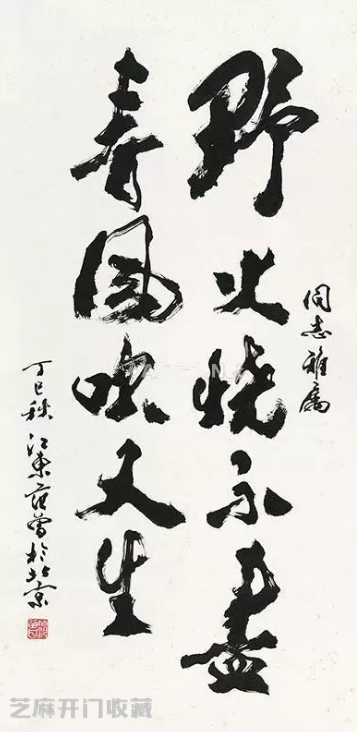 野火烧不尽
春风吹又生
同志雅属
丁巳秋江东范曾於北京
芝麻开门收藏